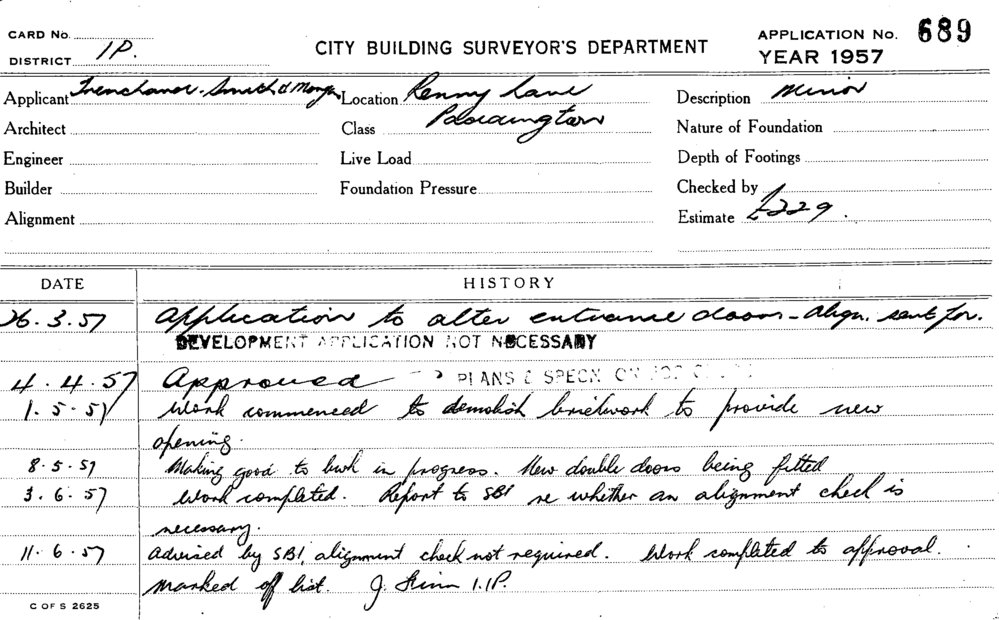 CARD No.
DISTRICT 1P.
CITY BUILDING SURVEYOR'S DEPARTMENT
APPLICATION No. 689
YEAR 1957
Applicant Smith & Morgan Location Lane Description Minor
Architect Class Paddington Nature of Foundation
Engineer Live Load Depth of Footings
Builder Foundation Pressure Checked by
Alignment Estimate £229.
DATE HISTORY
26.3.57 Application to alter entrance doors - Align. sent for.
DEVELOPMENT APPLICATION NOT NECESSARY
4.4.57 Approved PLANS & SPECN ON JOB
1.5.57 Work commenced to demolish brickwork to provide new
opening.
8.5.57 Making good to bwk in progress. New double doors being fitted
3.6.57 Work completed. Report to SBI re whether an alignment check is
necessary.
11.6.57 Advised by SBI alignment check not required. Work completed to approval.
Marked off list. J. 1.1P.
C OF S 2625